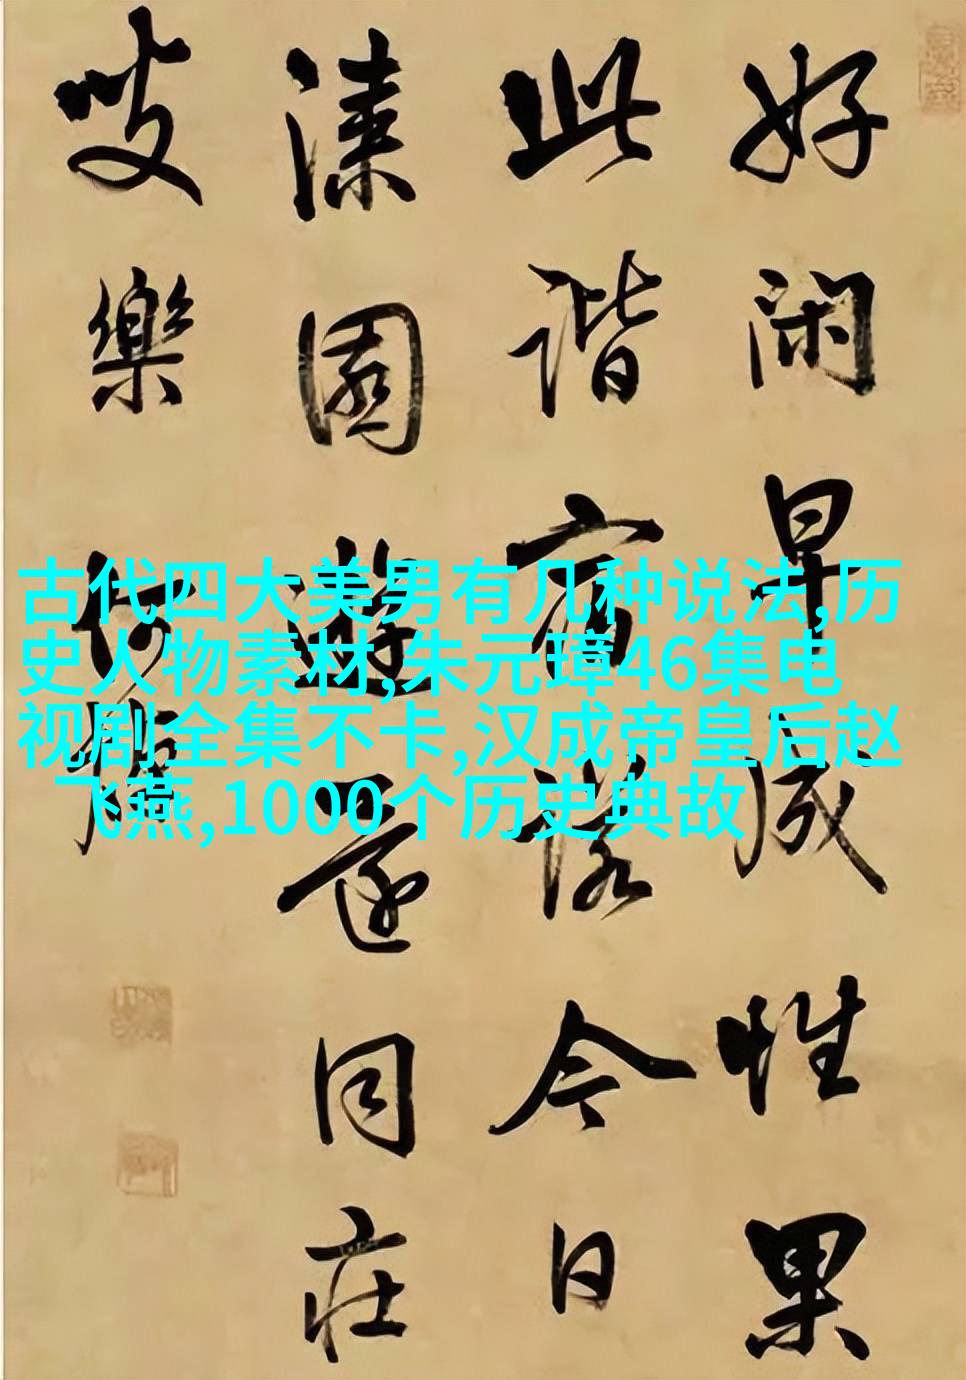 好闲早成性果
此谐宿诺今日
漆園遊還同庄
叟樂 何
古代四大美男有几种说法,历
史人物素材,朱元璋46集电
视剧全集不卡,汉成帝皇后赵
飞燕,1000个历史典故